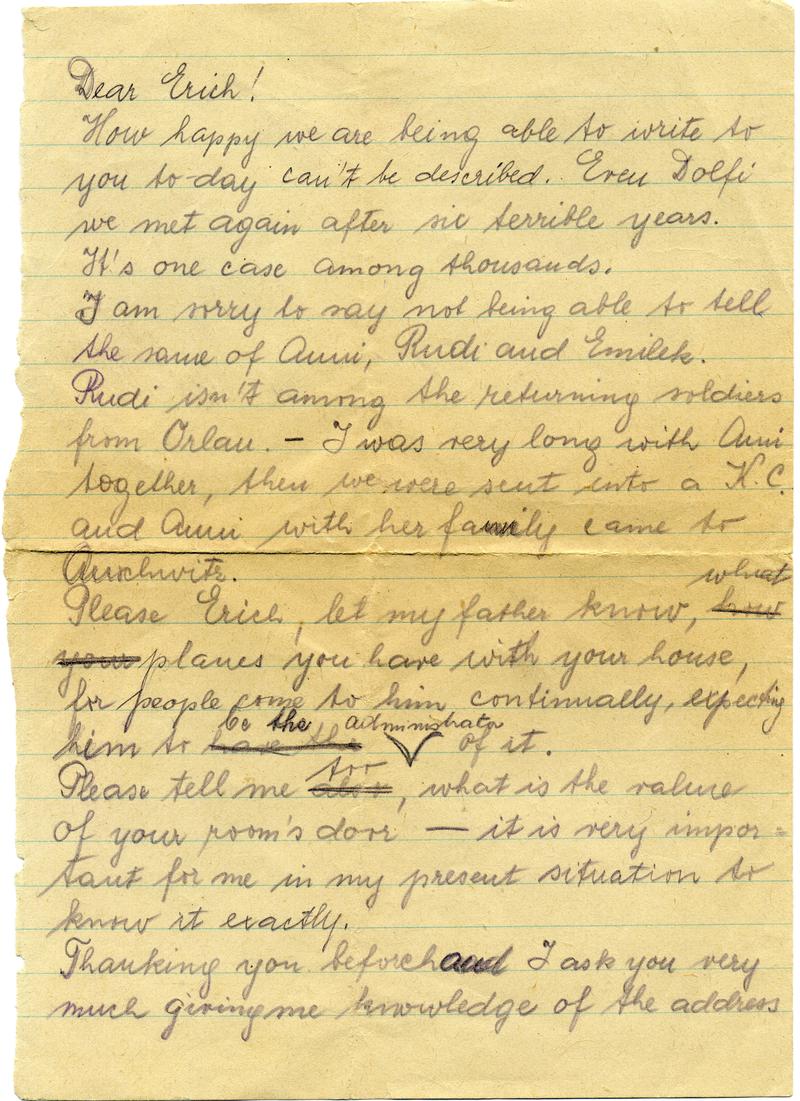 Dear Erich!
How happy we are being able to write to
you to-day can't be described. Even Dolfi
we met again after sic terrible years.
It's one case among thousands.
I am sorry to say not being able to tell
the same of Anni, Rudi and Emilek.
Rudi isn't among the returning soldiers
from Orlau. – I was very long with Anni
together, then we were sent into a K.C.
and Anni with her family came to
Auschwitz.
Please Erich, let my father know, ~~how~~ what
~~your~~ planes you have with your house,
for people come to him continually, expecting
him to ~~have the~~ be the administrator of it.
Please tell me ~~also~~ too, what is the value
of your room's door — it is very impor=
tant for me in my present situation to
know it exactly.
Thanking you beforehand I ask you very
much giving me knowledge of the address